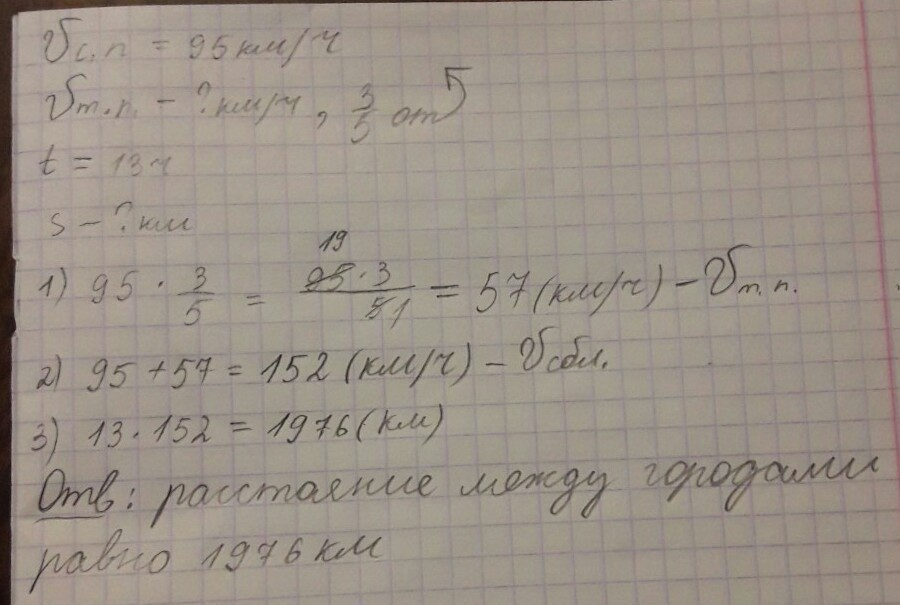 Vс.п. = 95 км/ч
Vт.п. - ? км/ч, 3/5 от
t = 13 ч
s - ? км
1) 95 · 3/5 = 95·3/5 = 57 (км/ч) - Vт.п.
19 1
2) 95 + 57 = 152 (км/ч) - Vсбл.
3) 13 · 152 = 1976 (км)
Отв: расстояние между городами
равно 1976 км